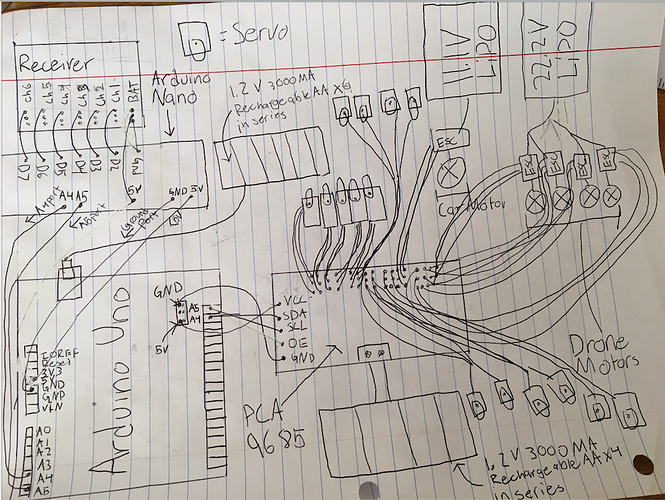 = Servo
Receiver
Ch6
Ch5
Ch4
Ch3
Ch2
Ch1
BAT
Arduino
Nano
1.2 V 3000MA
Rechargeable AA x6
in series
11.1V
LiPO
22.2V
LiPO
D7
D6
D5
D4
D3
D2
A4 A5
5V
GND 5V
A4 port
A5 port
Ground
Port
5V
ESC
ESC
ESC
ESC
ESC
Car Motor
GND
A5
A4
5V
VCC
SDA
SCL
OE
GND
Arduino Uno
IOREF
Reset
3V3
5V
GND
GND
VIN
A0
A1
A2
A3
A4
A5
PCA
9685
Drone
Motors
1.2 V 3000MA
Rechargeable AA x4
in series